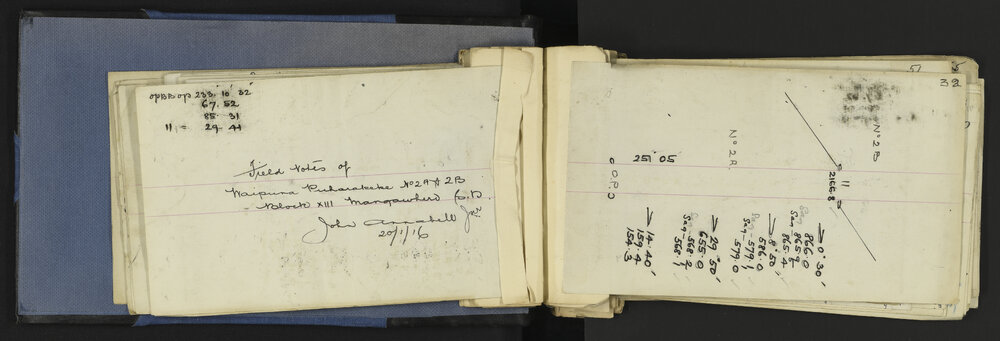 233° 10' 32"
67. 52
85. 31
11 = 29 41
Field Notes of
Waipuna Puharakeke No 2A & 2B
Block XIII Mangawhero S.D
John Annabell
20/1/16
51
32
No 2B
No 2A
11
2166.8
251 05
O.P.D
0° 30'
866.0
865.9
Sag 5
865.4
8° 50'
586.0
579.1
Sag 1
579.0
29° 50'
655.0
568.2
Sag 1
568.1
14. 40'
159.4
154.3